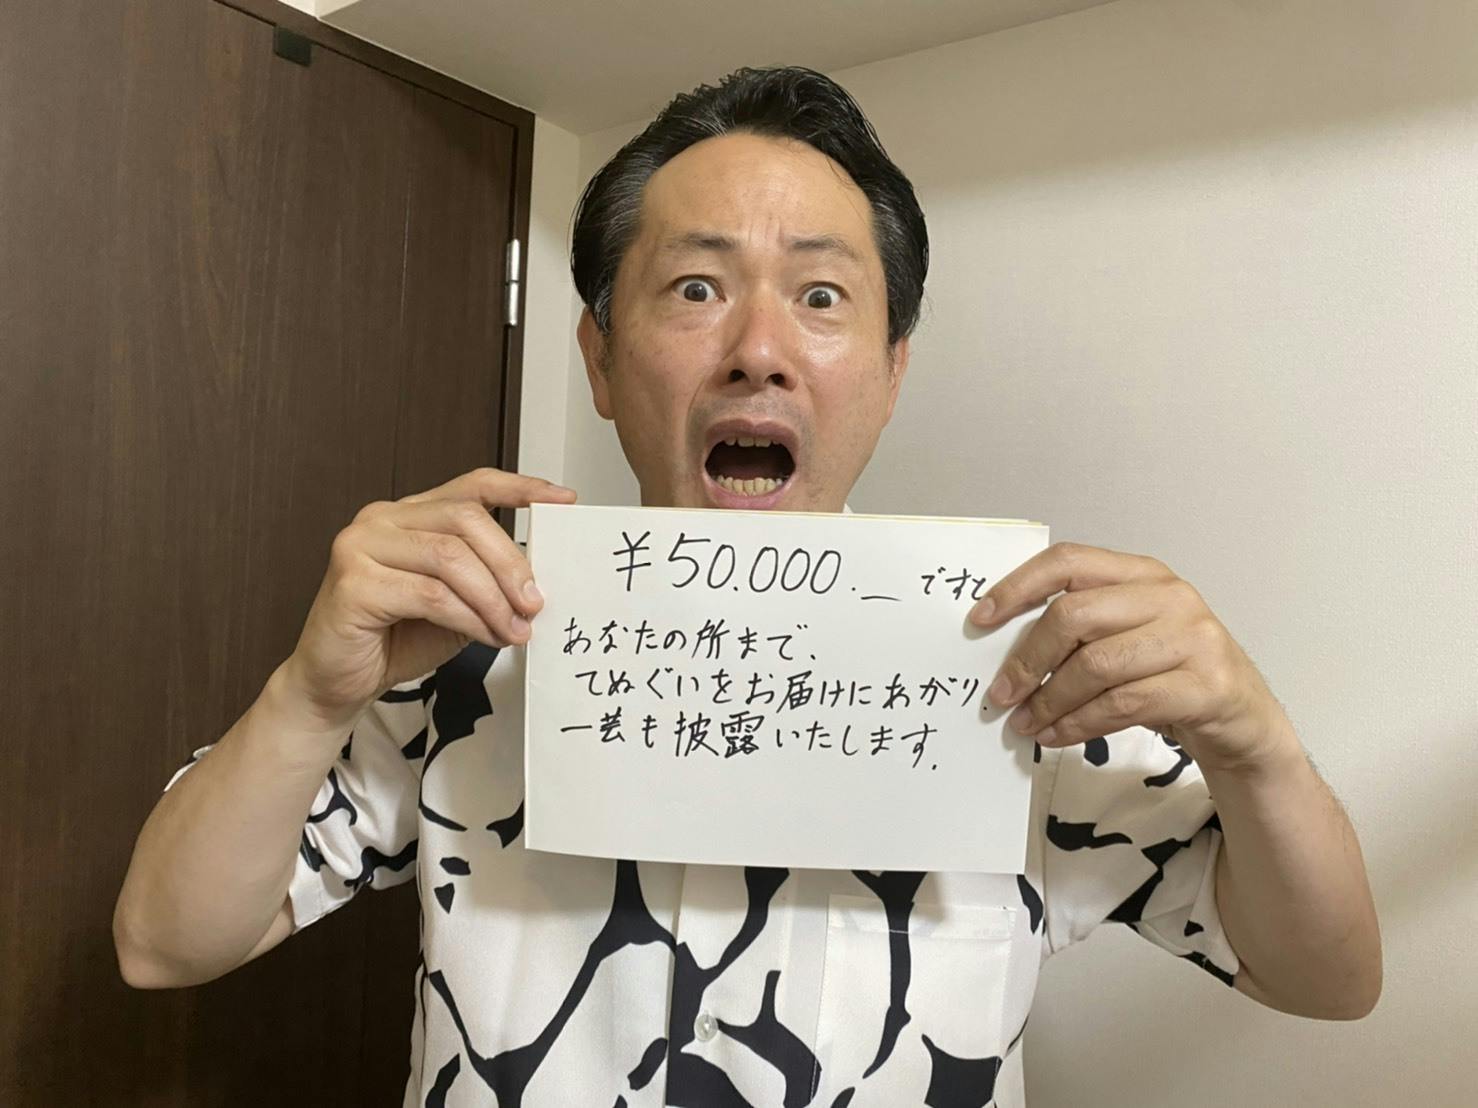 ¥50.000.— ですと
あなたの所まで、
てぬぐいをお届けにあがり、
一芸も披露いたします。